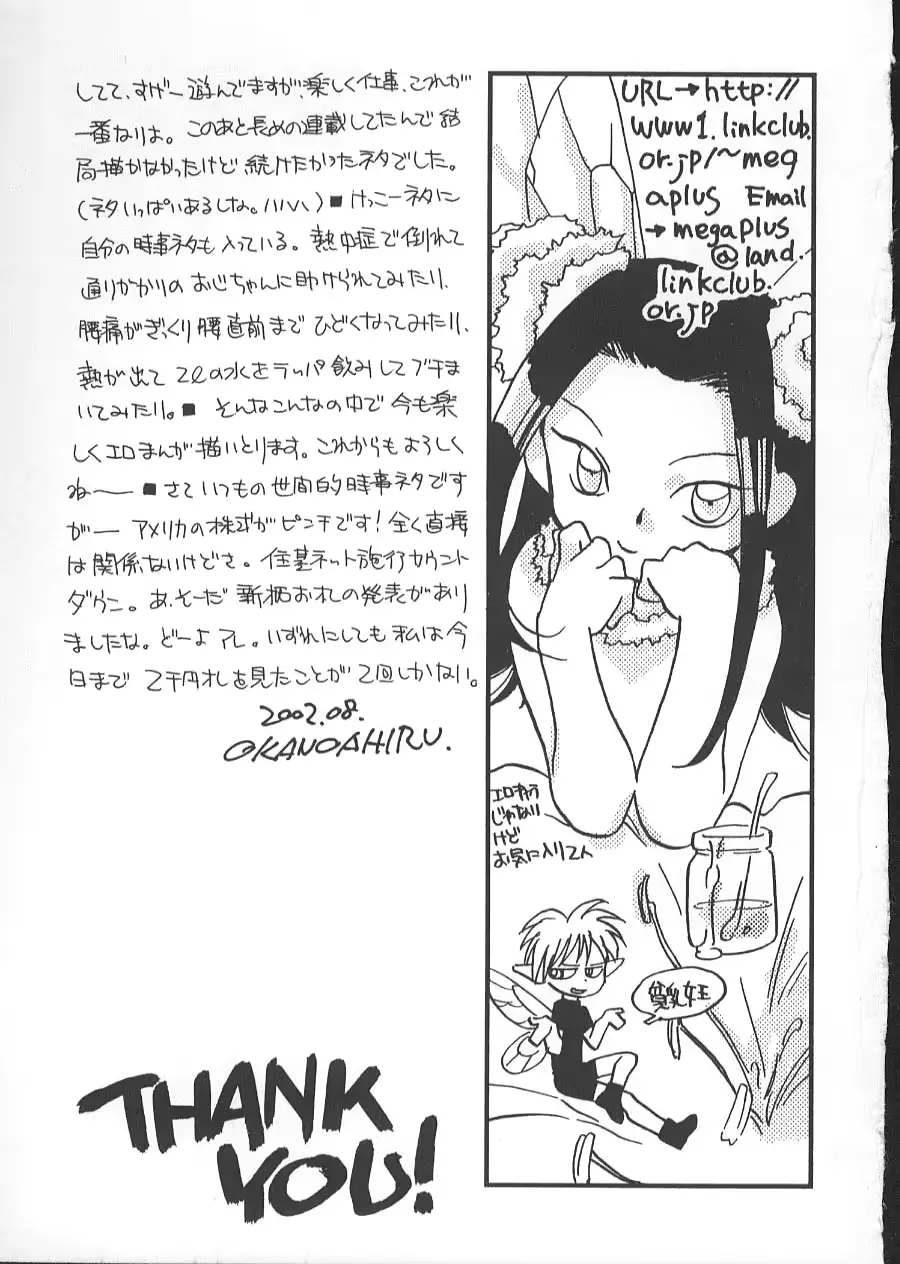 してて、すげー遊んでますが、楽しく仕事、これが
一番なりよ。このあと長めの連載してたんで結
局描かなかったけど続けたかったネタでした。
(ネタいっぱいあるしな。ハハハ)■けっこーネタに
自分の時事ネタも入っている。熱中症で倒れて
通りかかりのおじちゃんに助けられてみたり、
腰痛がぎっくり腰直前までひどくなってみたり、
熱が出て2ℓの水をラッパ飲みしてブチま
いてみたり。■そんなこんなの中で今も楽
しくエロまんが描いとります。これからもよろしく
ね――■さていつもの世間的時事ネタです
がー アメリカの株式がピンチです!全く直接
は関係ないけどさ。住基ネット施行カウント
ダウン。あ、そーだ新柄お札の発表があり
ましたな。どーよアレ。いずれにしても私は今
日まで2千円札を見たことが2回しかない。
2002.08.
OKANOAHIRU.
URL→http://
www1.linkclub.
or.jp/~meg
aplus Email
→megaplus
@land.
linkclub.
or.jp
エロキャラ
じゃない
けど
お気に入り
貧乳女王
THANK
YOU!